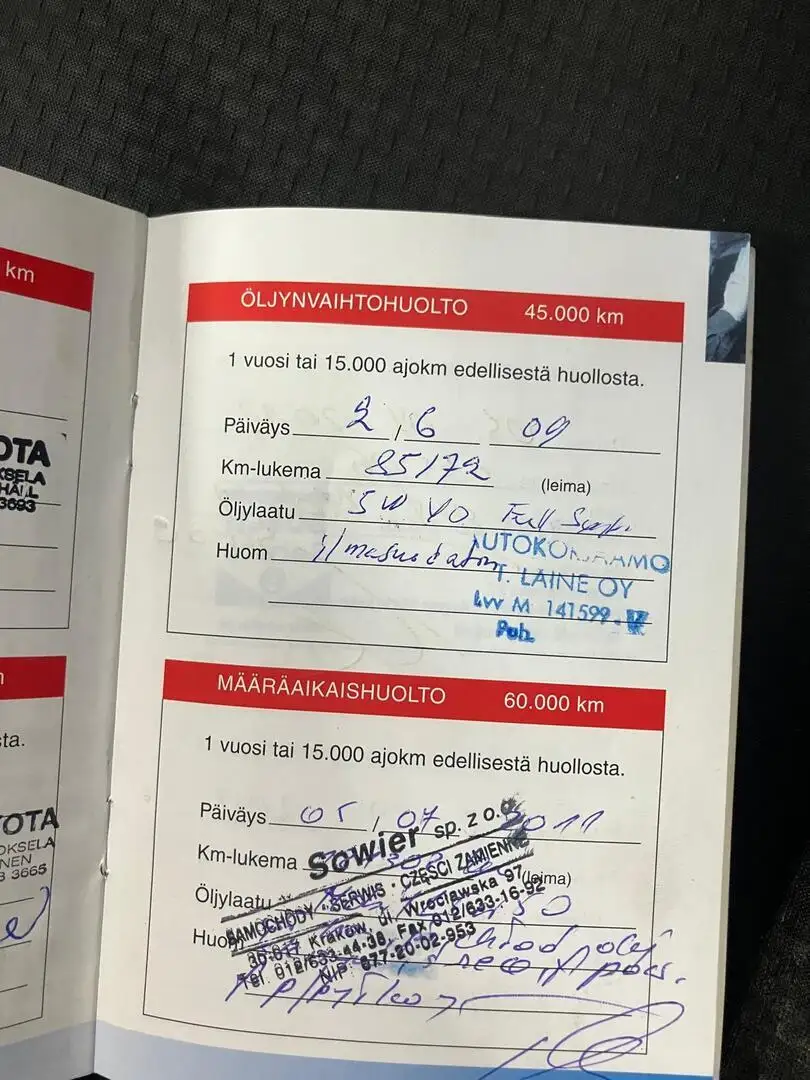 km
OTA
KSELA
HALL
3693
ta.
OTA
OKSELA
NEN
3 3665
ÖLJYNVAIHTOHUOLTO 45.000 km
1 vuosi tai 15.000 ajokm edellisestä huollosta.
Päiväys 2 , 6 09
Km-lukema 85172 (leima)
Öljylaatu 5W 40 Full
Huom
AUTOKORJAAMO
T. LAINE OY
Lvv M 141599-V
Puh.
MÄÄRÄAIKAISHUOLTO 60.000 km
1 vuosi tai 15.000 ajokm edellisestä huollosta.
Päiväys 05 , 07 2011
Km-lukema (leima)
Öljylaatu
Huom
Sowier sp. z o.o.
SAMOCHODY · SERWIS · CZĘŚCI ZAMIENNE
30-017 Kraków, ul. Wrocławska 97
Tel. 012/633-44-38, Fax 012/633-16-92
NIP: 677-20-02-953